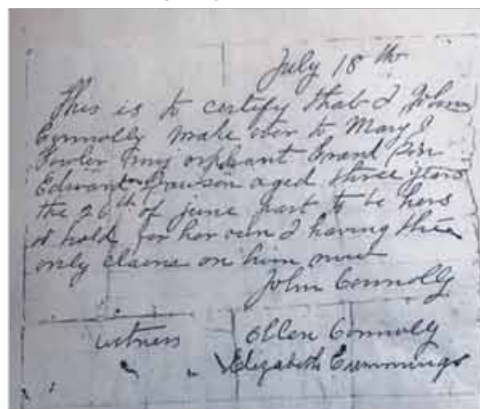 July 18th
This is to certify that I John
Connolly make over to Mary J
Fowler my orphant Grand Son
Edward Dawson aged three years
the 26th of june past to be hers
to hold for her own I having the
only claim on him now
John Connolly
witness Ellen Connolly
Elizabeth Cummings